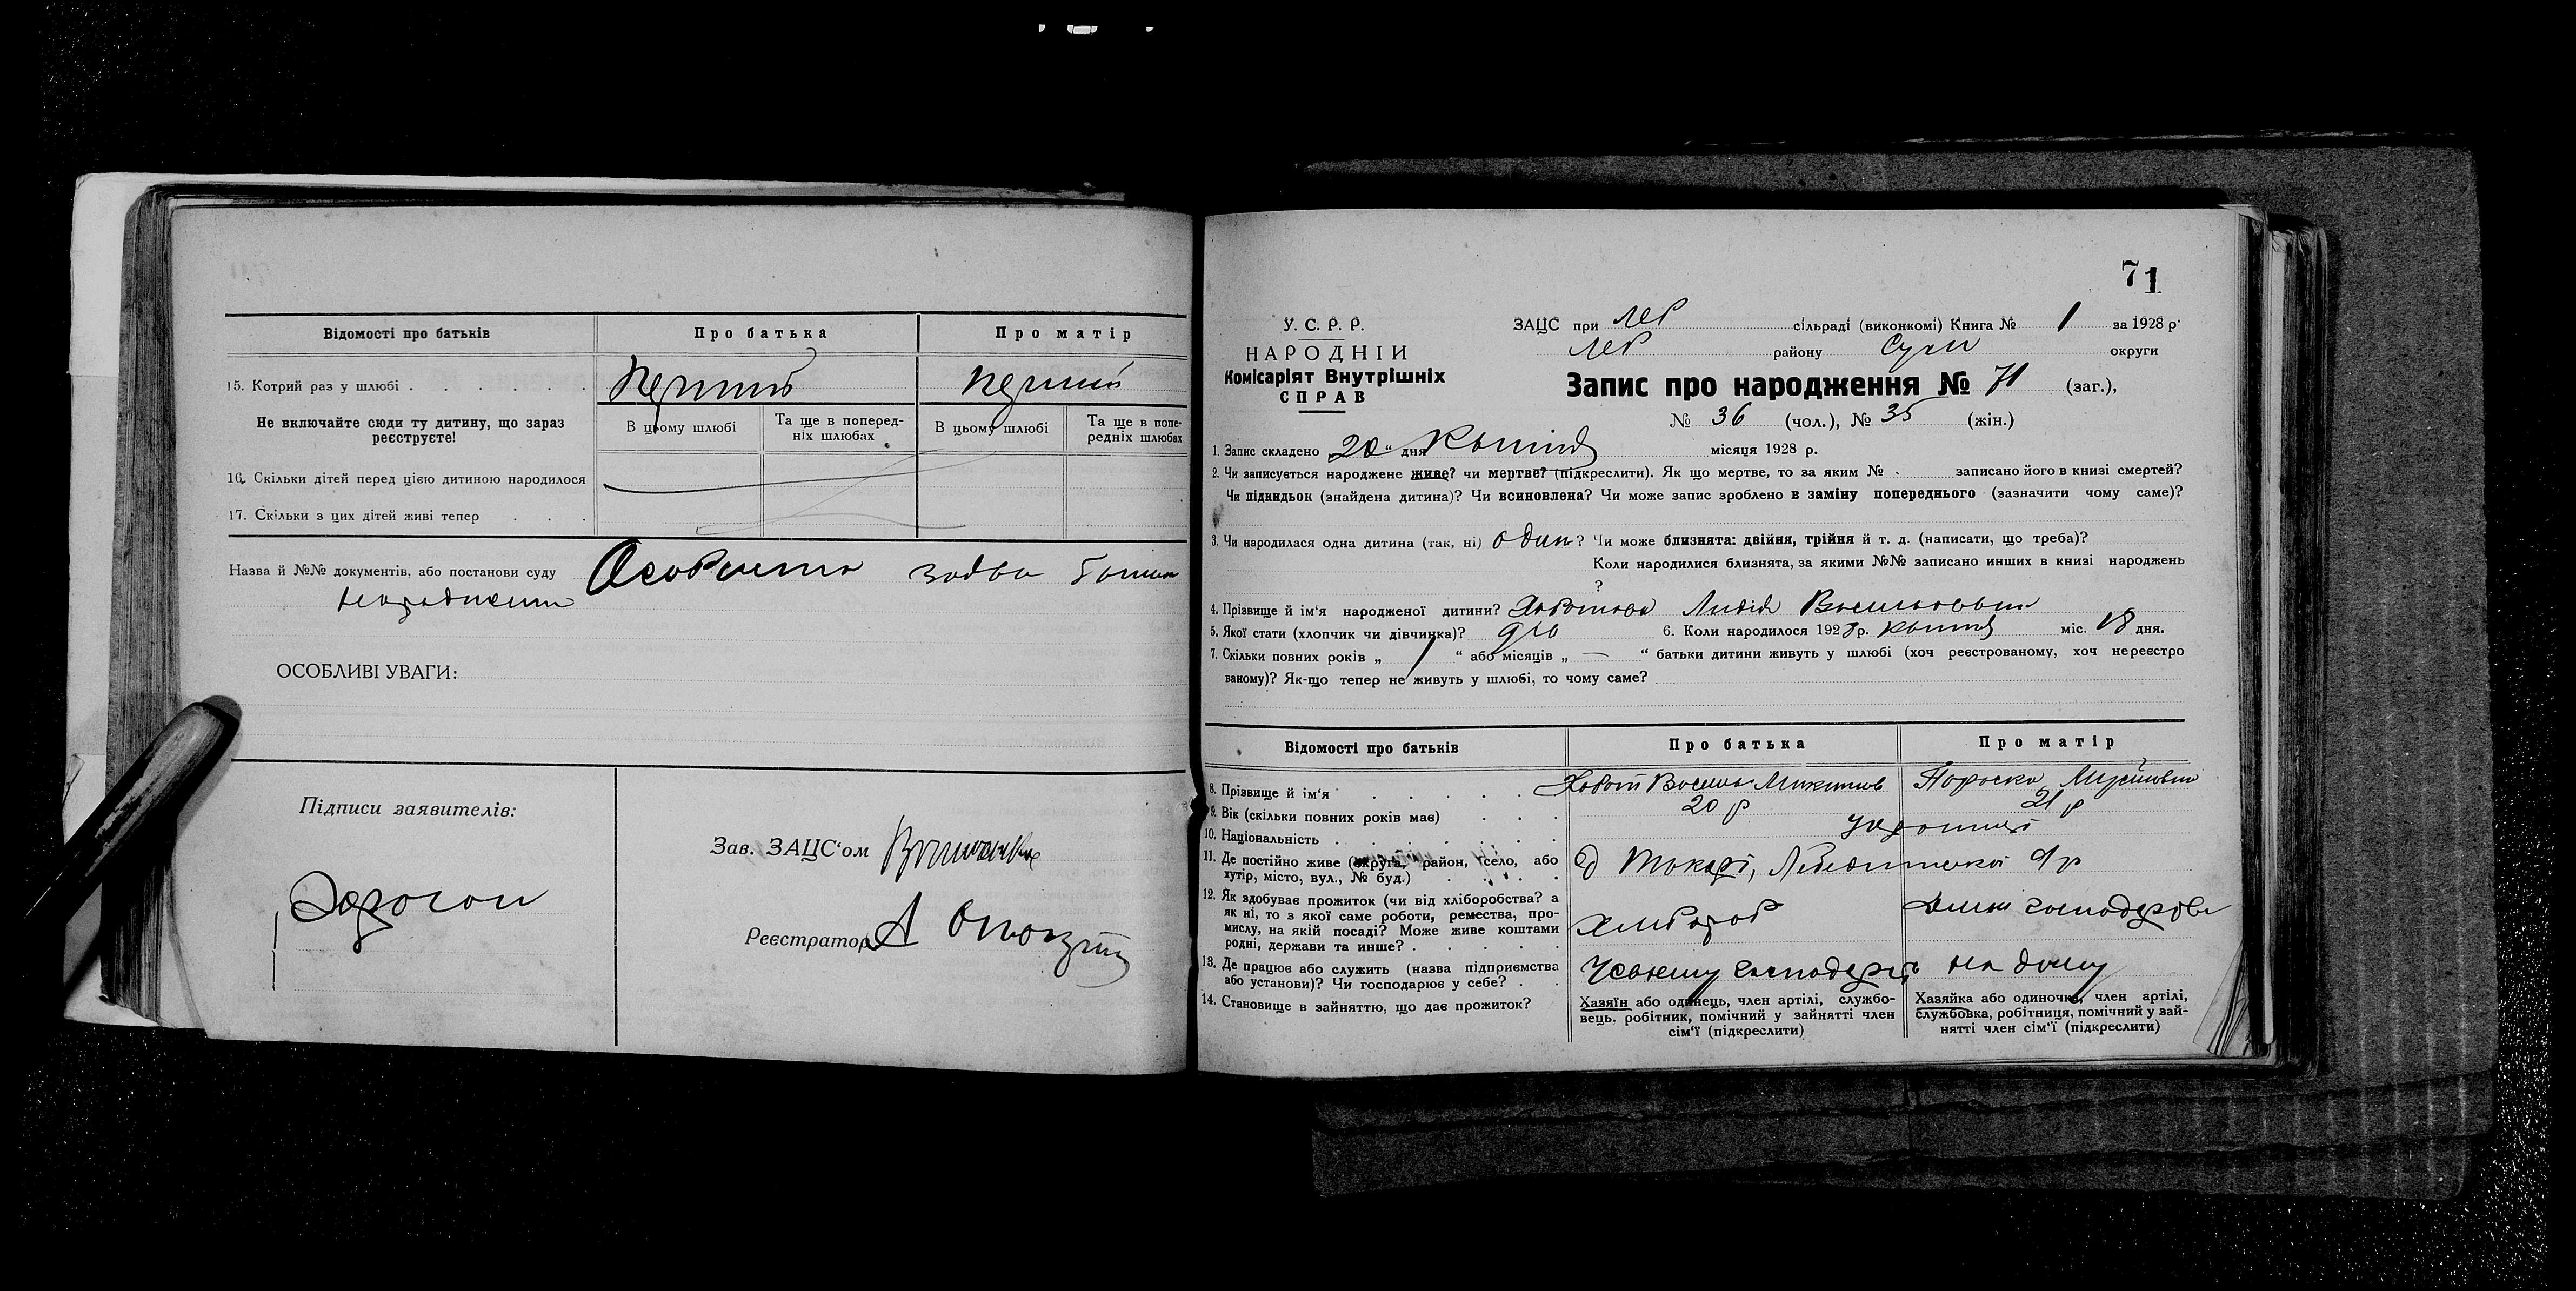 Відомості про батьків Про батька Про матір
15. Котрий раз у шлюбі . . . . . . . перший перший
Не включайте сюди ту дитину, що зараз реєструєте!
В цьому шлюбі Та ще в поперед-ніх шлюбах В цьому шлюбі Та ще в попе-редніх шлюбах
16. Скільки дітей перед цією дитиною народилося
17. Скільки з цих дітей живі тепер . . .
Назва й №№ документів, або постанови суду Особиста
ОСОБЛИВІ УВАГИ:
Підписи заявителів:
Зав. ЗАЦС‘ом
Реєстратор А
71
У. С. Р. Р.
НАРОДНІЙ
Комісаріят Внутрішніх
СПРАВ
ЗАЦС при Леб сільраді (виконкомі) Книга № 1 за 1928 р.
Леб району Суми округи
Запис про народження № 71 (заг.),
№ 36 (чол.), № 35 (жін.)
1. Запис складено „20“ дня Квітня місяця 1928 р.
2. Чи записується народжене живе? чи мертве? (підкреслити). Як що мертве, то за яким № . записано його в книзі смертей?
Чи підкидьок (знайдена дитина)? Чи всиновлена? Чи може запис зроблено в заміну попереднього (зазначити чому саме)?
3. Чи народилася одна дитина (так, ні) один? Чи може близнята: двійня, трійня й т. д. (написати, що треба)?
Коли народилися близнята, за якими №№ записано инших в книзі народжень
?
4. Прізвище й ім‘я народженої дитини? Лидія Васильовна
5. Якої стати (хлопчик чи дівчинка)? 6. Коли народилося 1928 р. квітня міс. 18 дня.
7. Скільки повних років „ 1 “ або місяців „ — “ батьки дитини живуть у шлюбі (хоч реєстрованому, хоч нереєстро
ваному)? Як-що тепер не живуть у шлюбі, то чому саме?
Відомості про батьків Про батька Про матір
8. Прізвище й ім‘я . . . . . Василь Микитов Параска
9. Вік (скільки повних років має) . . . 20 р 21 р
10. Національність . . . . . . .
11. Де постійно живе (округа, район, село, або
хутір, місто, вул., № буд.) . . . . Токарі,
12. Як здобуває прожиток (чи від хліборобства? а
як ні, то з якої саме роботи, ремества, про-
мислу, на якій посаді? Може живе коштами
родні, держави та инше? . . . . . хлібороб
13. Де працює або служить (назва підприємства
або установи)? Чи господарює у себе? . . на дому
14. Становище в зайняттю, що дає прожиток?
Хазяїн або одинець, член артілі, службо-
вець. робітник, помічний у зайнятті член
сім‘ї (підкреслити)
Хазяйка або одиночка, член артілі,
службовка, робітниця, помічний у зай-
нятті член сім‘ї (підкреслити)